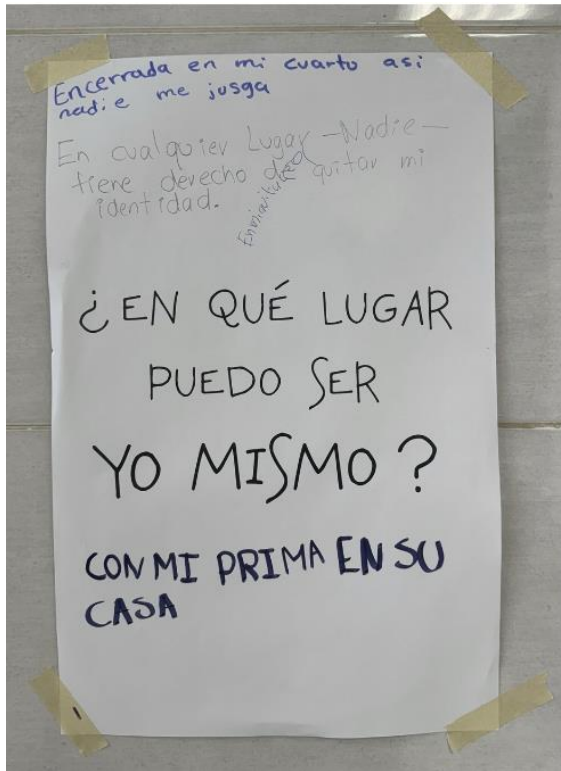 Encerrada en mi cuarto asi
nadie me jusga
En cualquier Lugar -Nadie-
tiene derecho de quitar mi
identidad.
¿EN QUÉ LUGAR
PUEDO SER
YO MISMO?
CON MI PRIMA EN SU
CASA